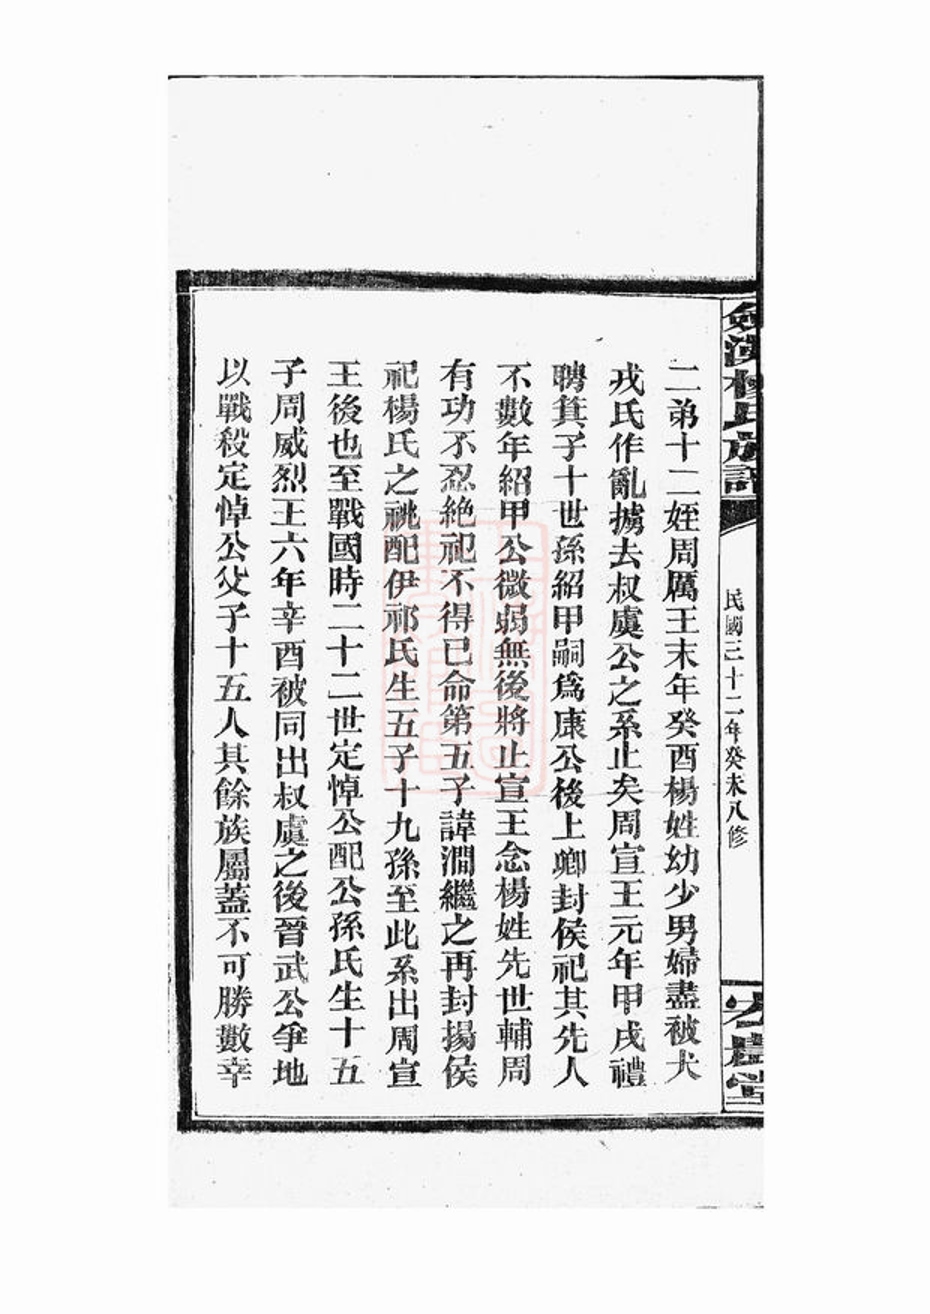 楊氏族譜
民國三十二年癸未八修
堂
二弟十二姪周厲王末年癸酉楊姓幼少男婦盡被犬
戎氏作亂擄去叔虞公之系止矣周宣王元年甲戌禮
聘箕子十世孫紹甲嗣爲康公後上卿封侯祀其先人
不數年紹甲公微弱無後將止宣王念楊姓先世輔周
有功不忍絶祀不得已命第五子諱澗繼之再封揚侯
祀楊氏之祧配伊祁氏生五子十九孫至此系出周宣
王後也至戰國時二十二世定悼公配公孫氏生十五
子周威烈王六年辛酉被同出叔虞之後晉武公爭地
以戰殺定悼公父子十五人其餘族屬蓋不可勝數幸